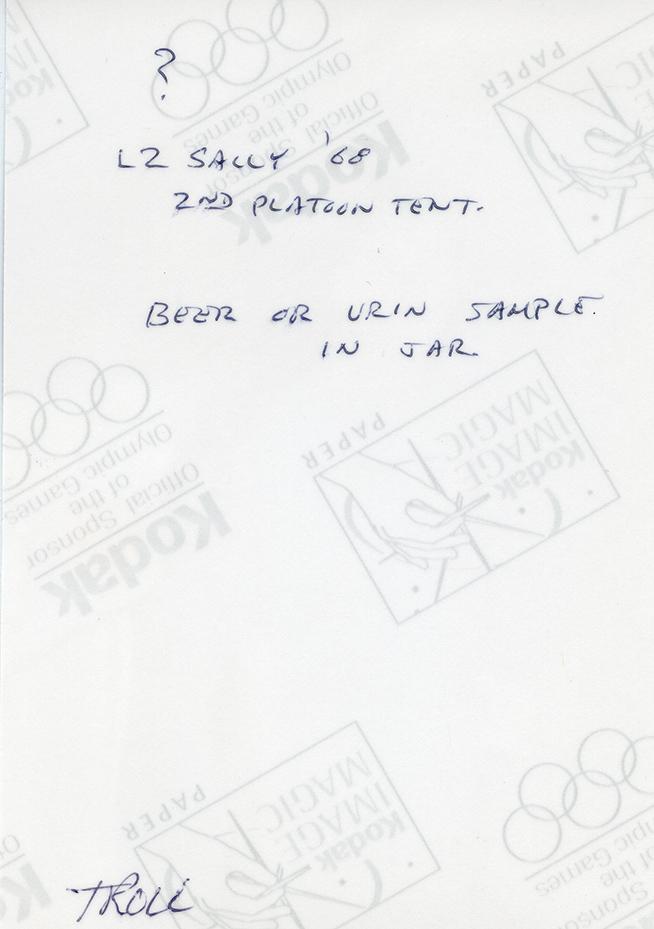 ?
LZ SALLY '68
2ND PLATOON TENT.
BEER OR URIN SAMPLE.
IN JAR.
TROLL
Kodak
Official Sponsor
of the
Olympic Games
Kodak
IMAGE
MAGIC
PAPER
Kodak
Official Sponsor
of the
Olympic Games
Kodak
IMAGE
MAGIC
PAPER
Kodak
IMAGE
MAGIC
PAPER